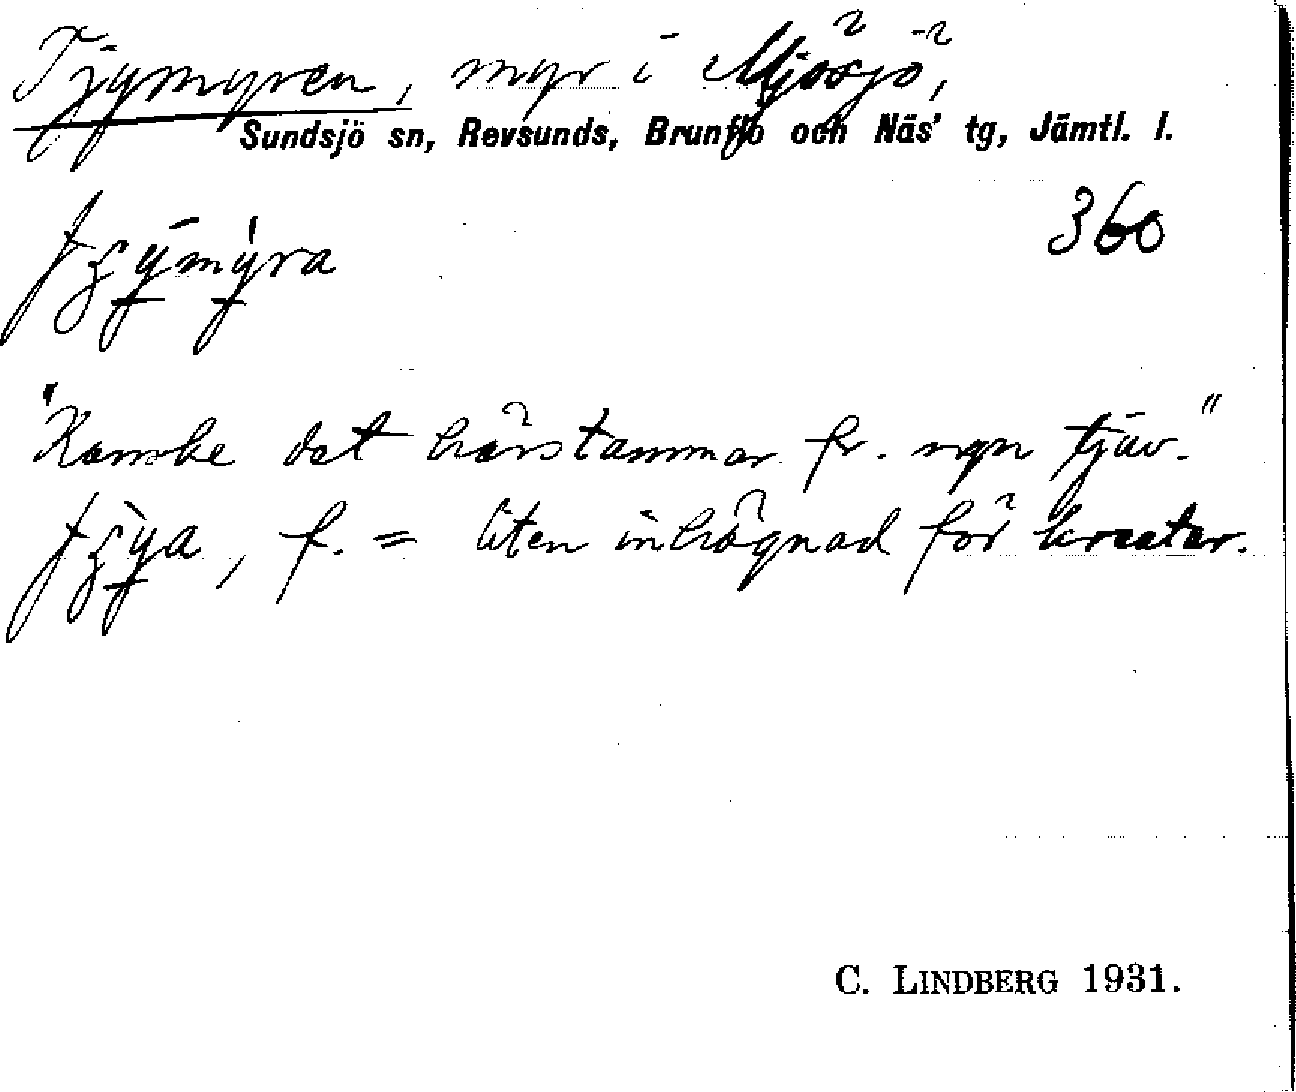 Tjymyren, myr i Mjösjö,
Sundsjö sn, Revsunds, Brunflo och Näs' tg, Jämtl. l.
360
"Kanske det härstammar fr. ngn tjuv."
f. = liten inhägnad för kreatur.
C. LINDBERG 1931.